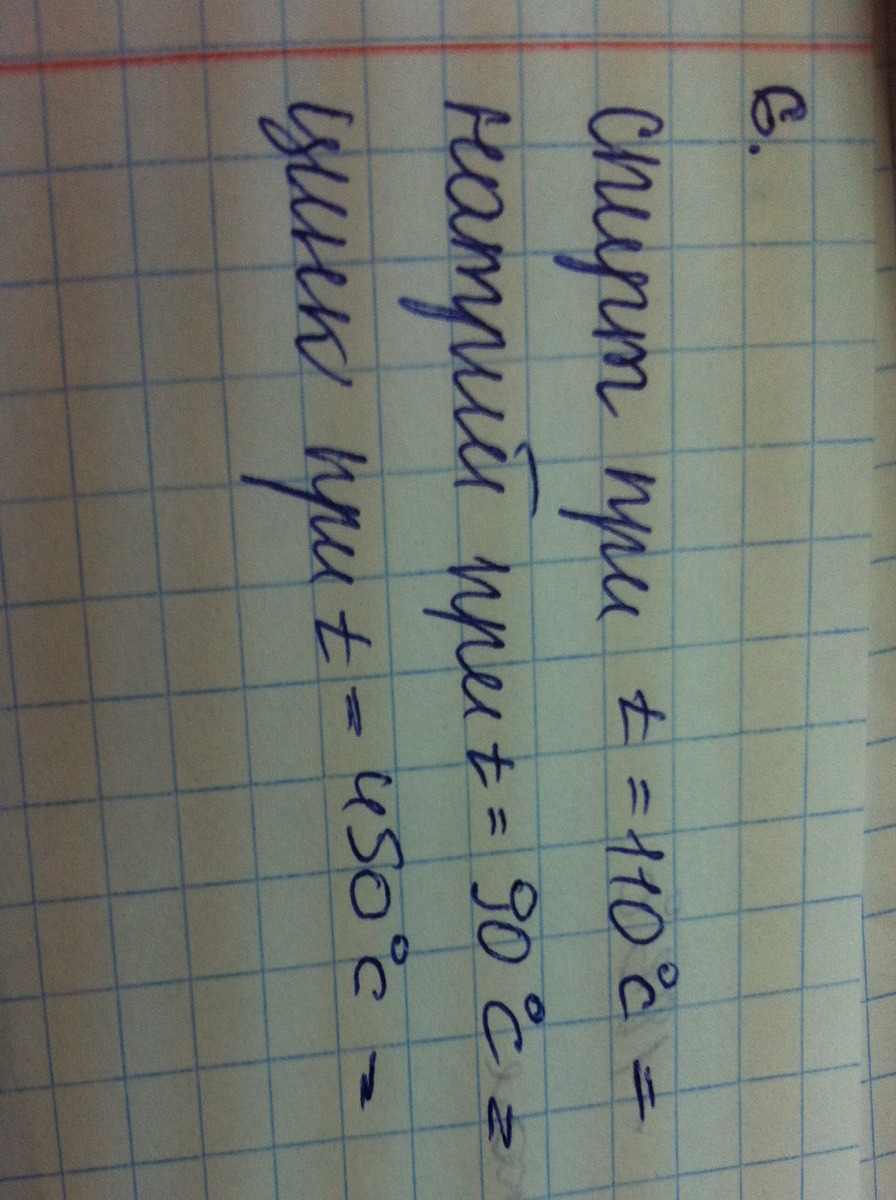 6.
Спирт при t = 110°C =
натрий при t = 90°C =
цинк при t = 450°C =